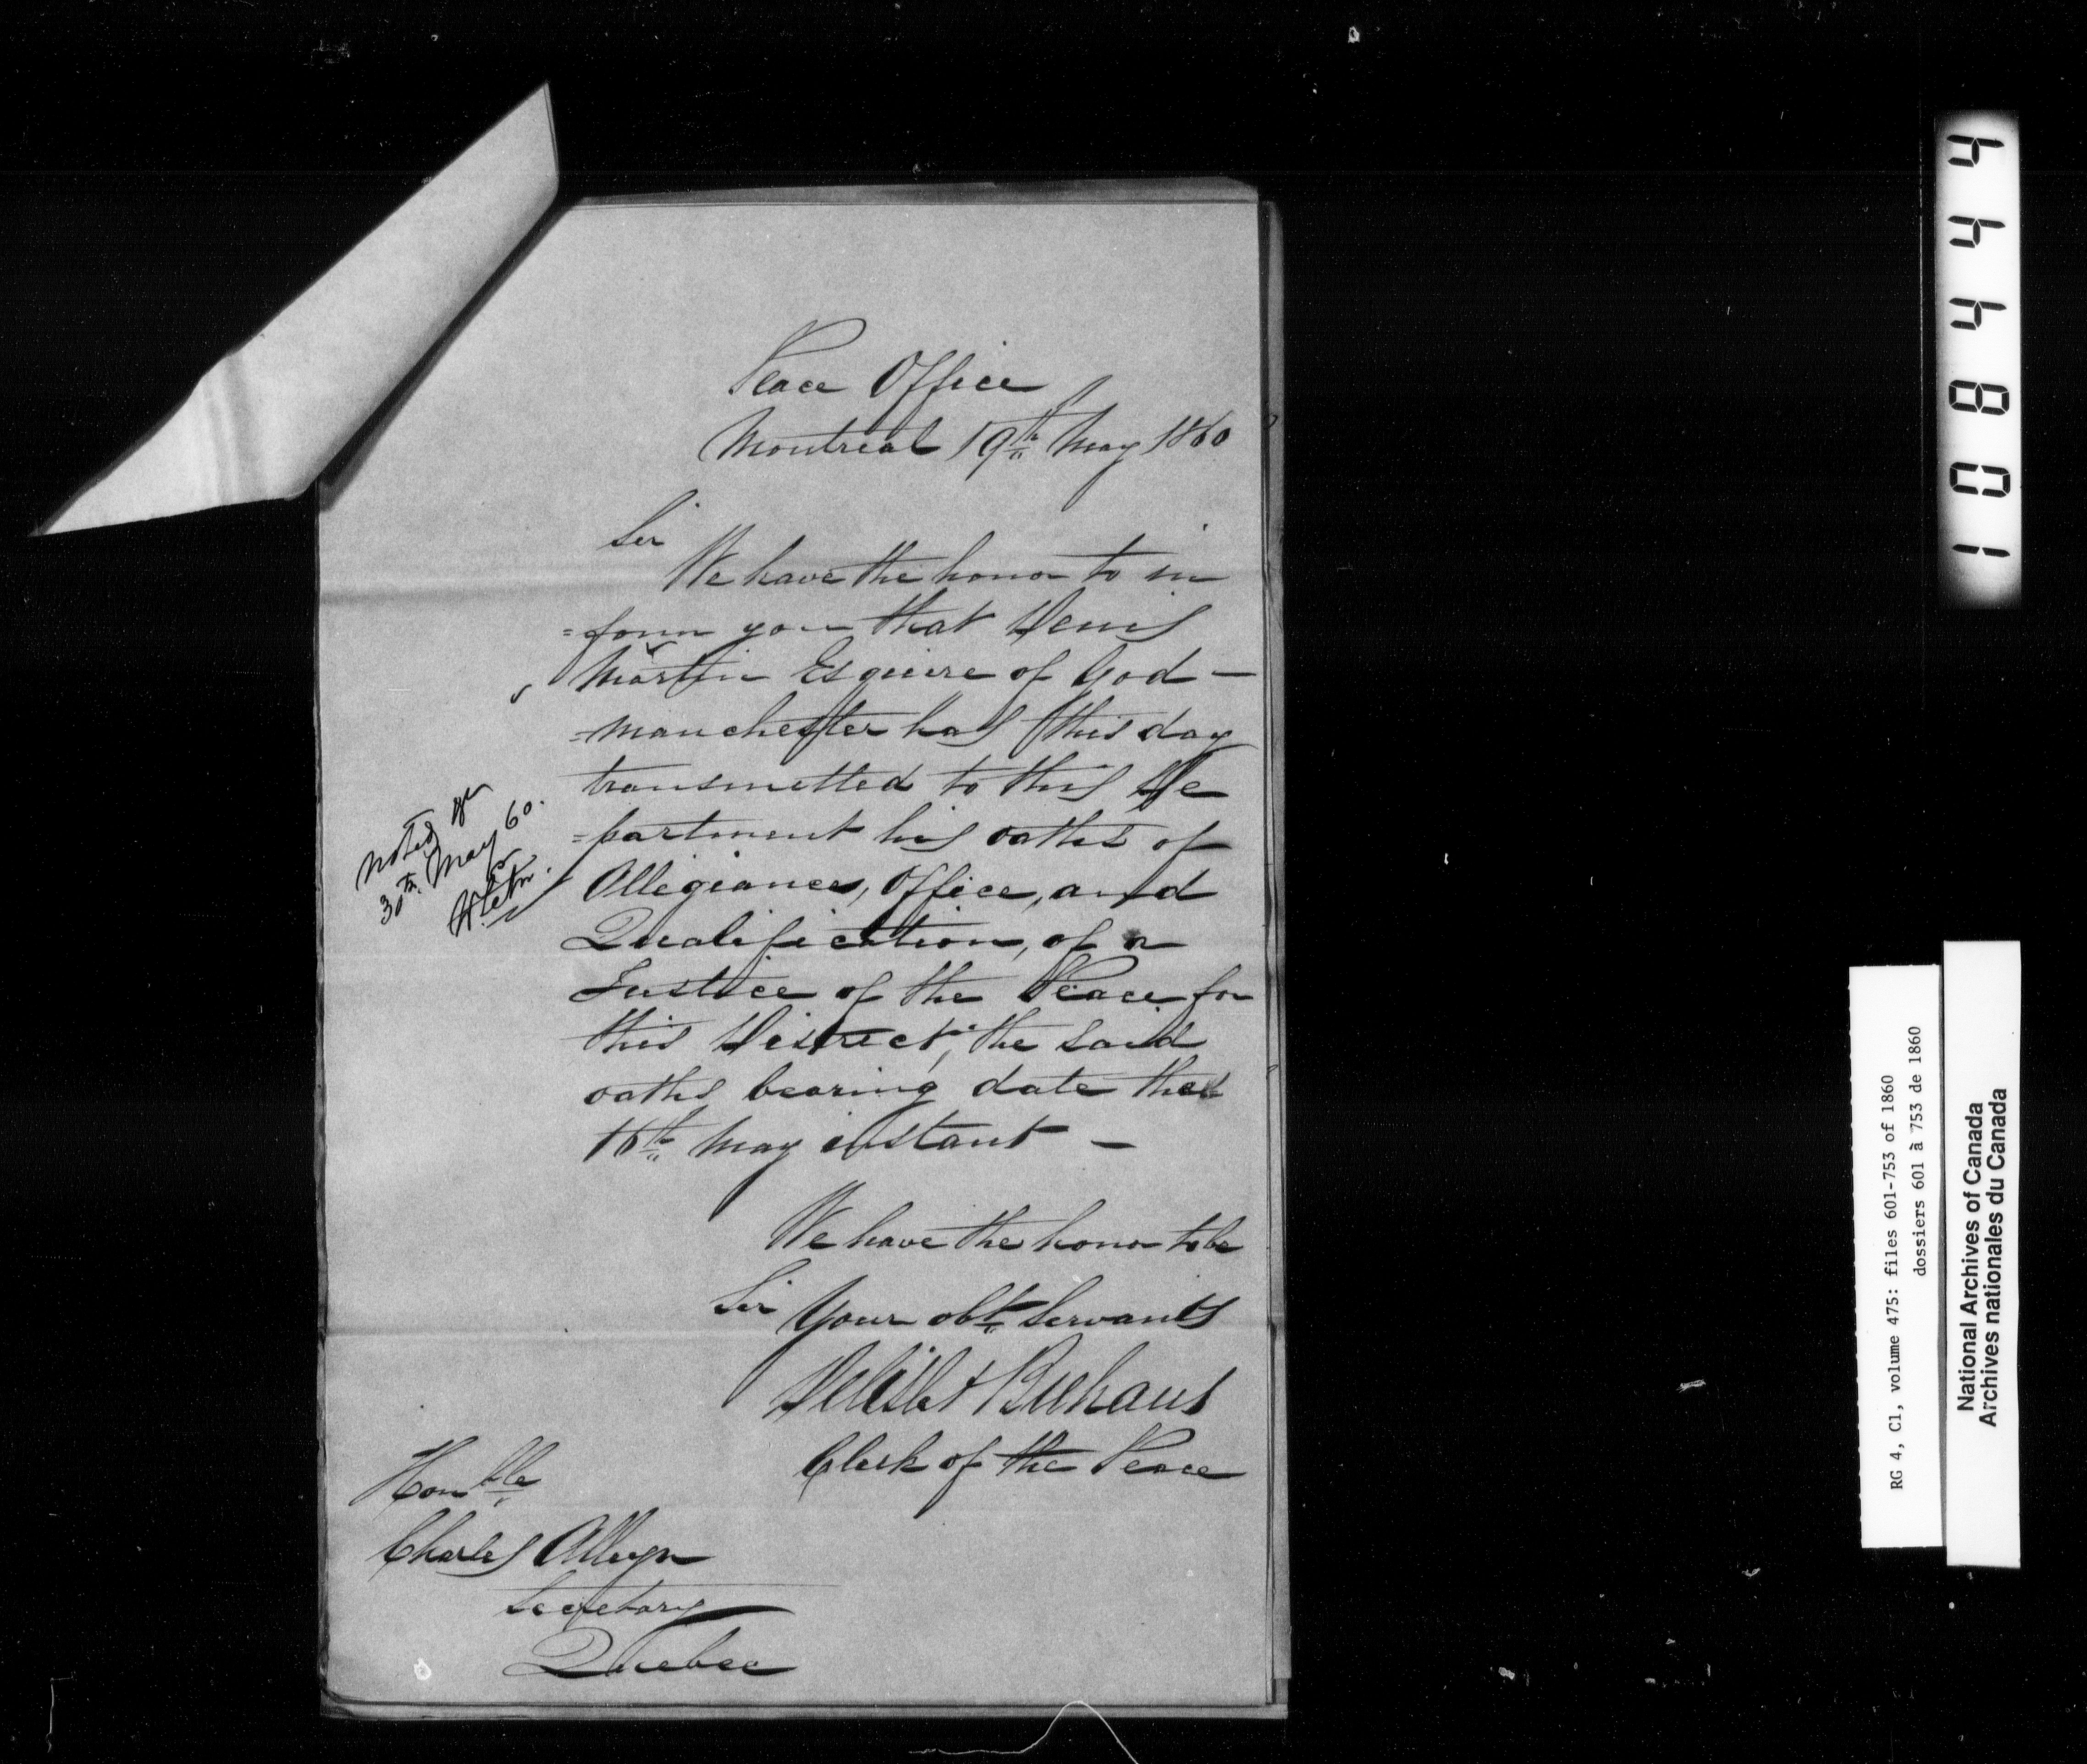 Peace Office
Montreal 19th May 1860
Sir
We have the honor to in
=form you that Denis
Martin Esquire of God-
=manchester has this day
transmitted to this De
=partment his oaths of
Allegiance, Office, and
Qualification, of a
Justice of the Peace for
this District, the said
oaths bearing date the
16th May instant -
We have the honor to be
Sir Your obt servants
Delisle & Brehaut
Clerk of the Peace
Honble
Charles Alleyn
Secretary
Quebec
Noted
30th May 60.
104844
RG 4, C1, volume 475: files 601-753 of 1860
dossiers 601 à 753 de 1860
National Archives of Canada
Archives nationales du Canada